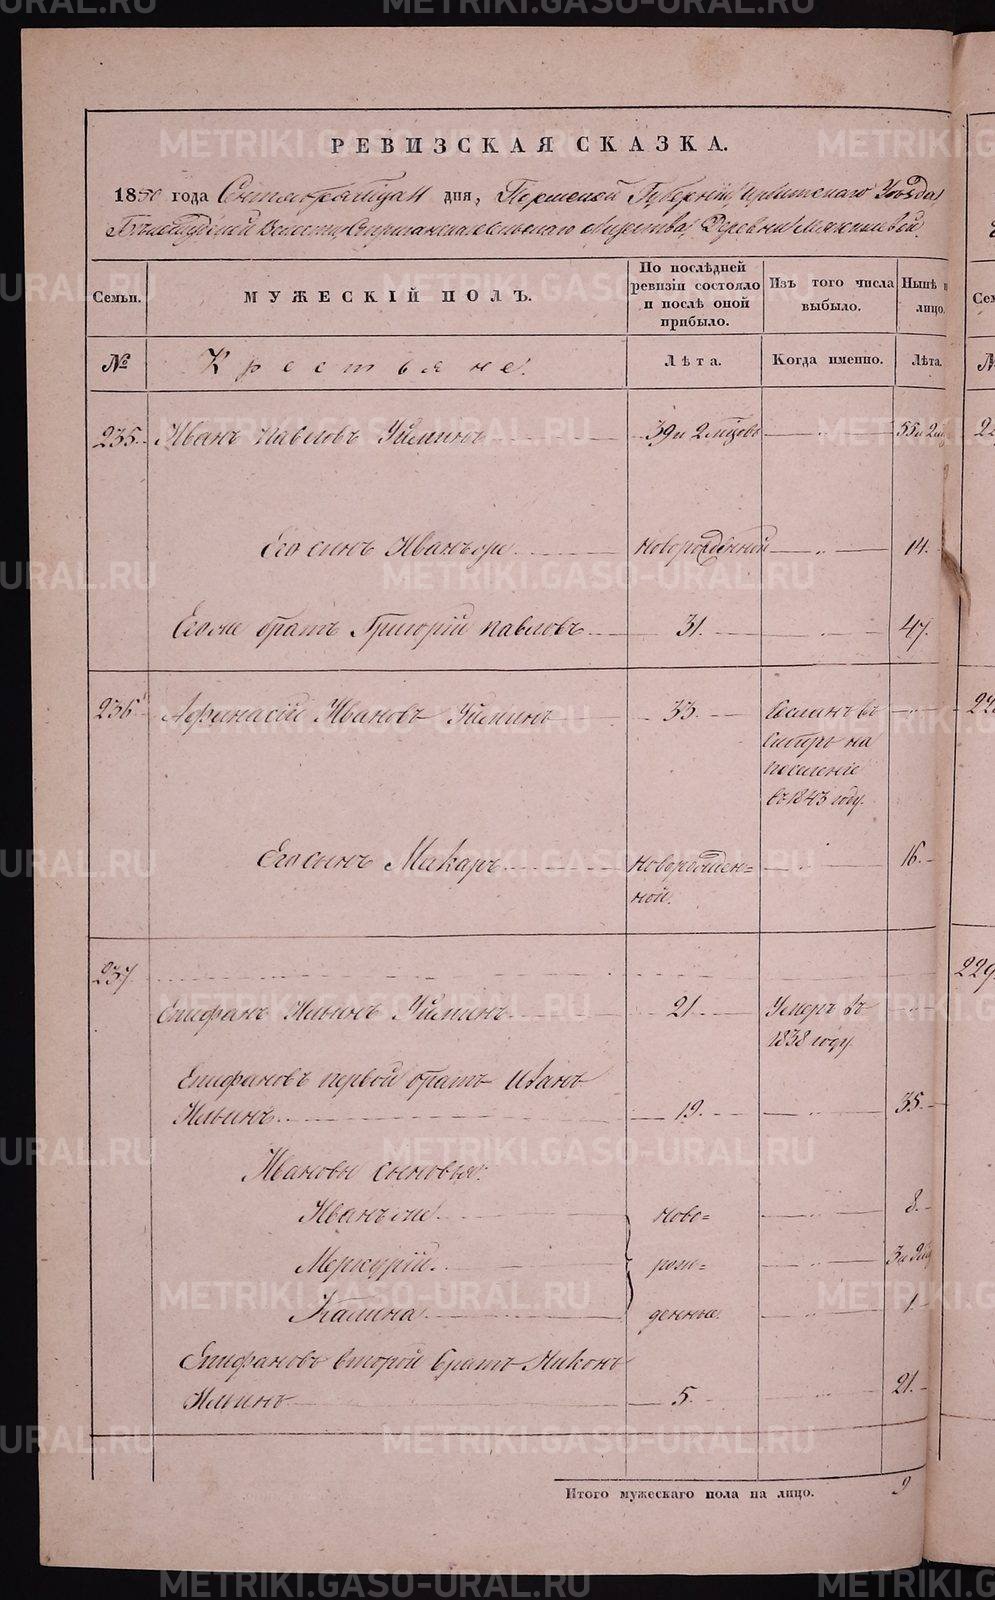 METRIKI.GASO-URAL.RU
РЕВИЗСКАЯ СКАЗКА.
1850 года Сентября дня, Пермской Губерніи, Ирбитскаго Уѣзда,
Волости, сельскаго общества, Деревни
Семьи.
МУЖЕСКІЙ ПОЛЪ.
По послѣдней ревизіи состояло и послѣ оной прибыло.
Изъ того числа выбыло.
Нынѣ лицо.
№
Крестьяне.
Лѣта.
Когда именно.
Лѣта.
235. Иванъ Павловъ Уймина 39 и 2 55 и 2
Его сынъ Иванъ новорожденной 14.
Его же братъ Григорій Павловъ 31. 47.
236 Афанасій Ивановъ Уйминъ 33. Сосланъ въ
Сибирь на
поселеніе
въ 1843 году.
Его сынъ Макаръ Новорожден= 16.
ной.
237
Епифанъ Ильинъ Уйминъ 21. Умеръ въ
1838 году.
Епифановъ первой братъ Иванъ
Ильинъ 19. 35.
Ивановы сыновья:
Иванъ ново= 8.
Меркурій рож= 3 и
Калина денные. 1.
Епифановъ второй братъ Никонъ
Ильинъ 5. 21.
Итого мужескаго пола на лицо. 9